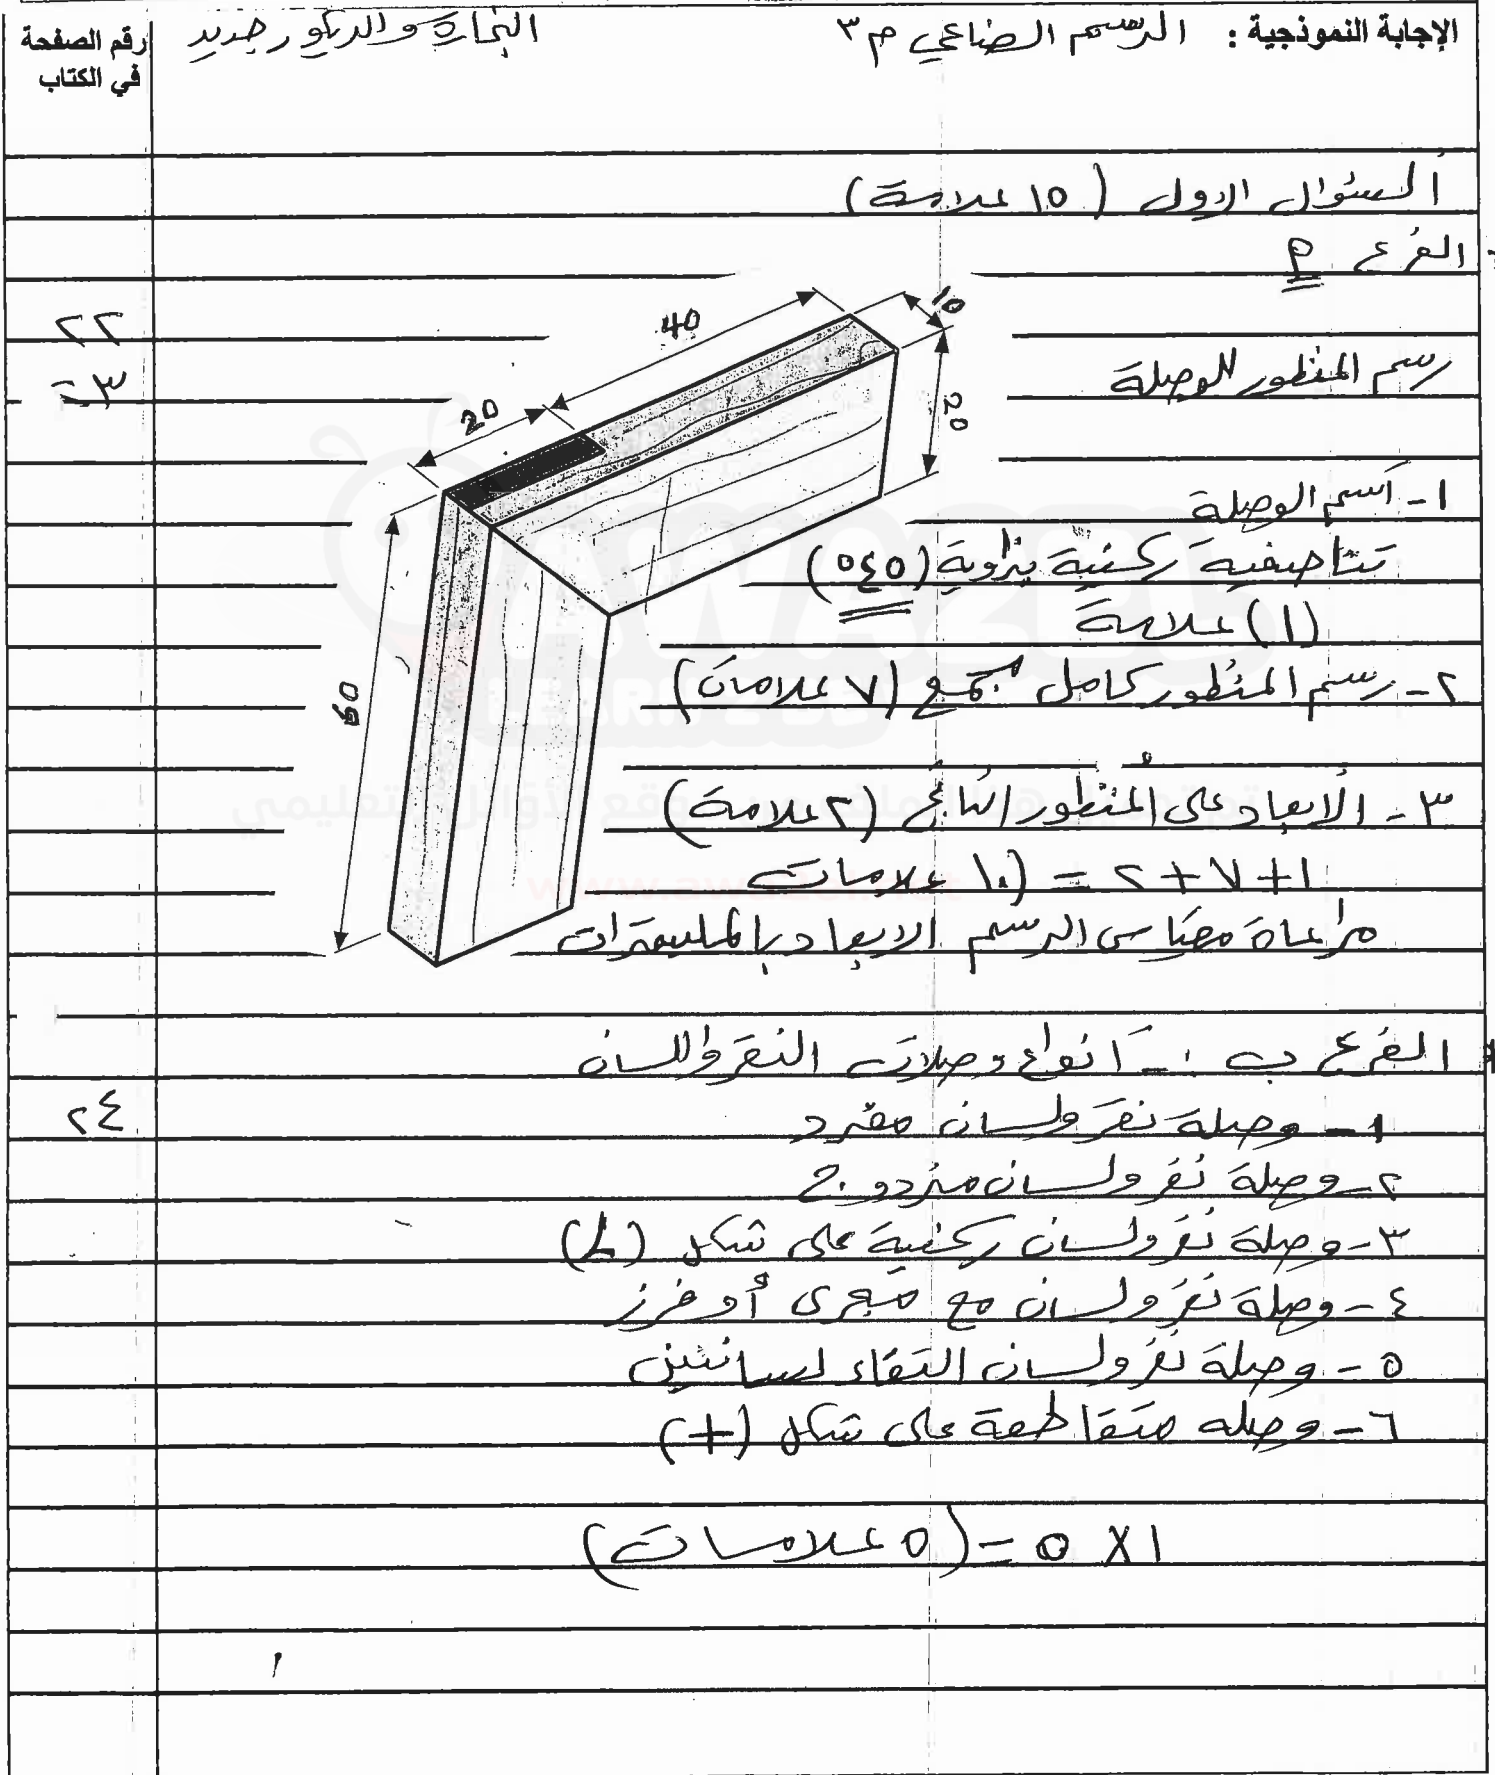 الإجابة النموذجية : الرسم الصناعي م٣ النجارة والديكور جديد
رقم الصفحة
في الكتاب
السؤال الاول (١٥ علامة)
الفرع أ
٢٢
رسم المنظور للوصلة
40
10
20
20
60
١- اسم الوصلة
تناصفية ركنية بزاوية (٤٥°)
(١) علامة
٢- رسم المنظور كامل مجمع (٧ علامات)
٣- الابعاد على المنظور الناتج (٢ علامة)
١+٧+٢ = (١٠ علامات
مراعاة مقياس الرسم الابعاد بالمليمترات
الفرع ب :- انواع وصلات النقر واللسان
٢٤
١- وصلة نقر ولسان مفرد
٢- وصلة نقر ولسان مزدوج
٣- وصلة نقر ولسان ركنية على شكل (L)
٤- وصلة نقر ولسان مع مجرى أو فرز
٥- وصلة نقر ولسان التقاء لسانين
٦- وصله متقاطعة على شكل (+)
١ X ٥ = (٥ علامات)
www.awa2el.net